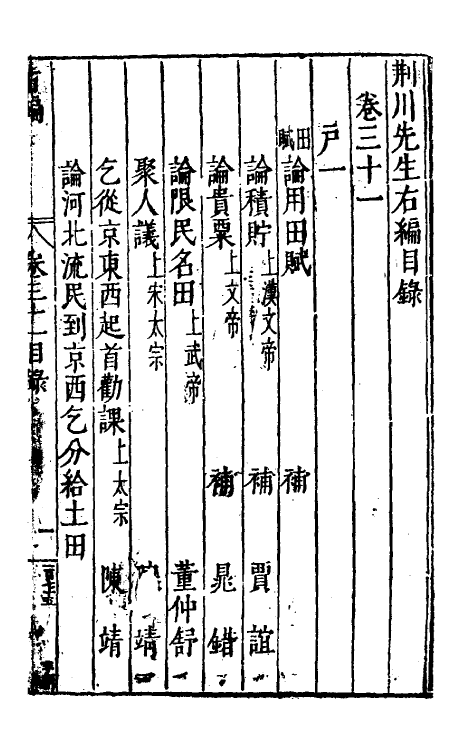 荆川先生右編目錄
卷三十一
戸一
田賦論用田賦 補
論積貯上漢文帝 補 賈誼
論貴粟上文帝 補 晁錯
論限民名田上武帝 董仲舒
聚人議上宋太宗 靖
乞從京東西起首勸課上太宗 陳靖
論河北流民到京西乞分給土田
右編 卷三十一目錄 一